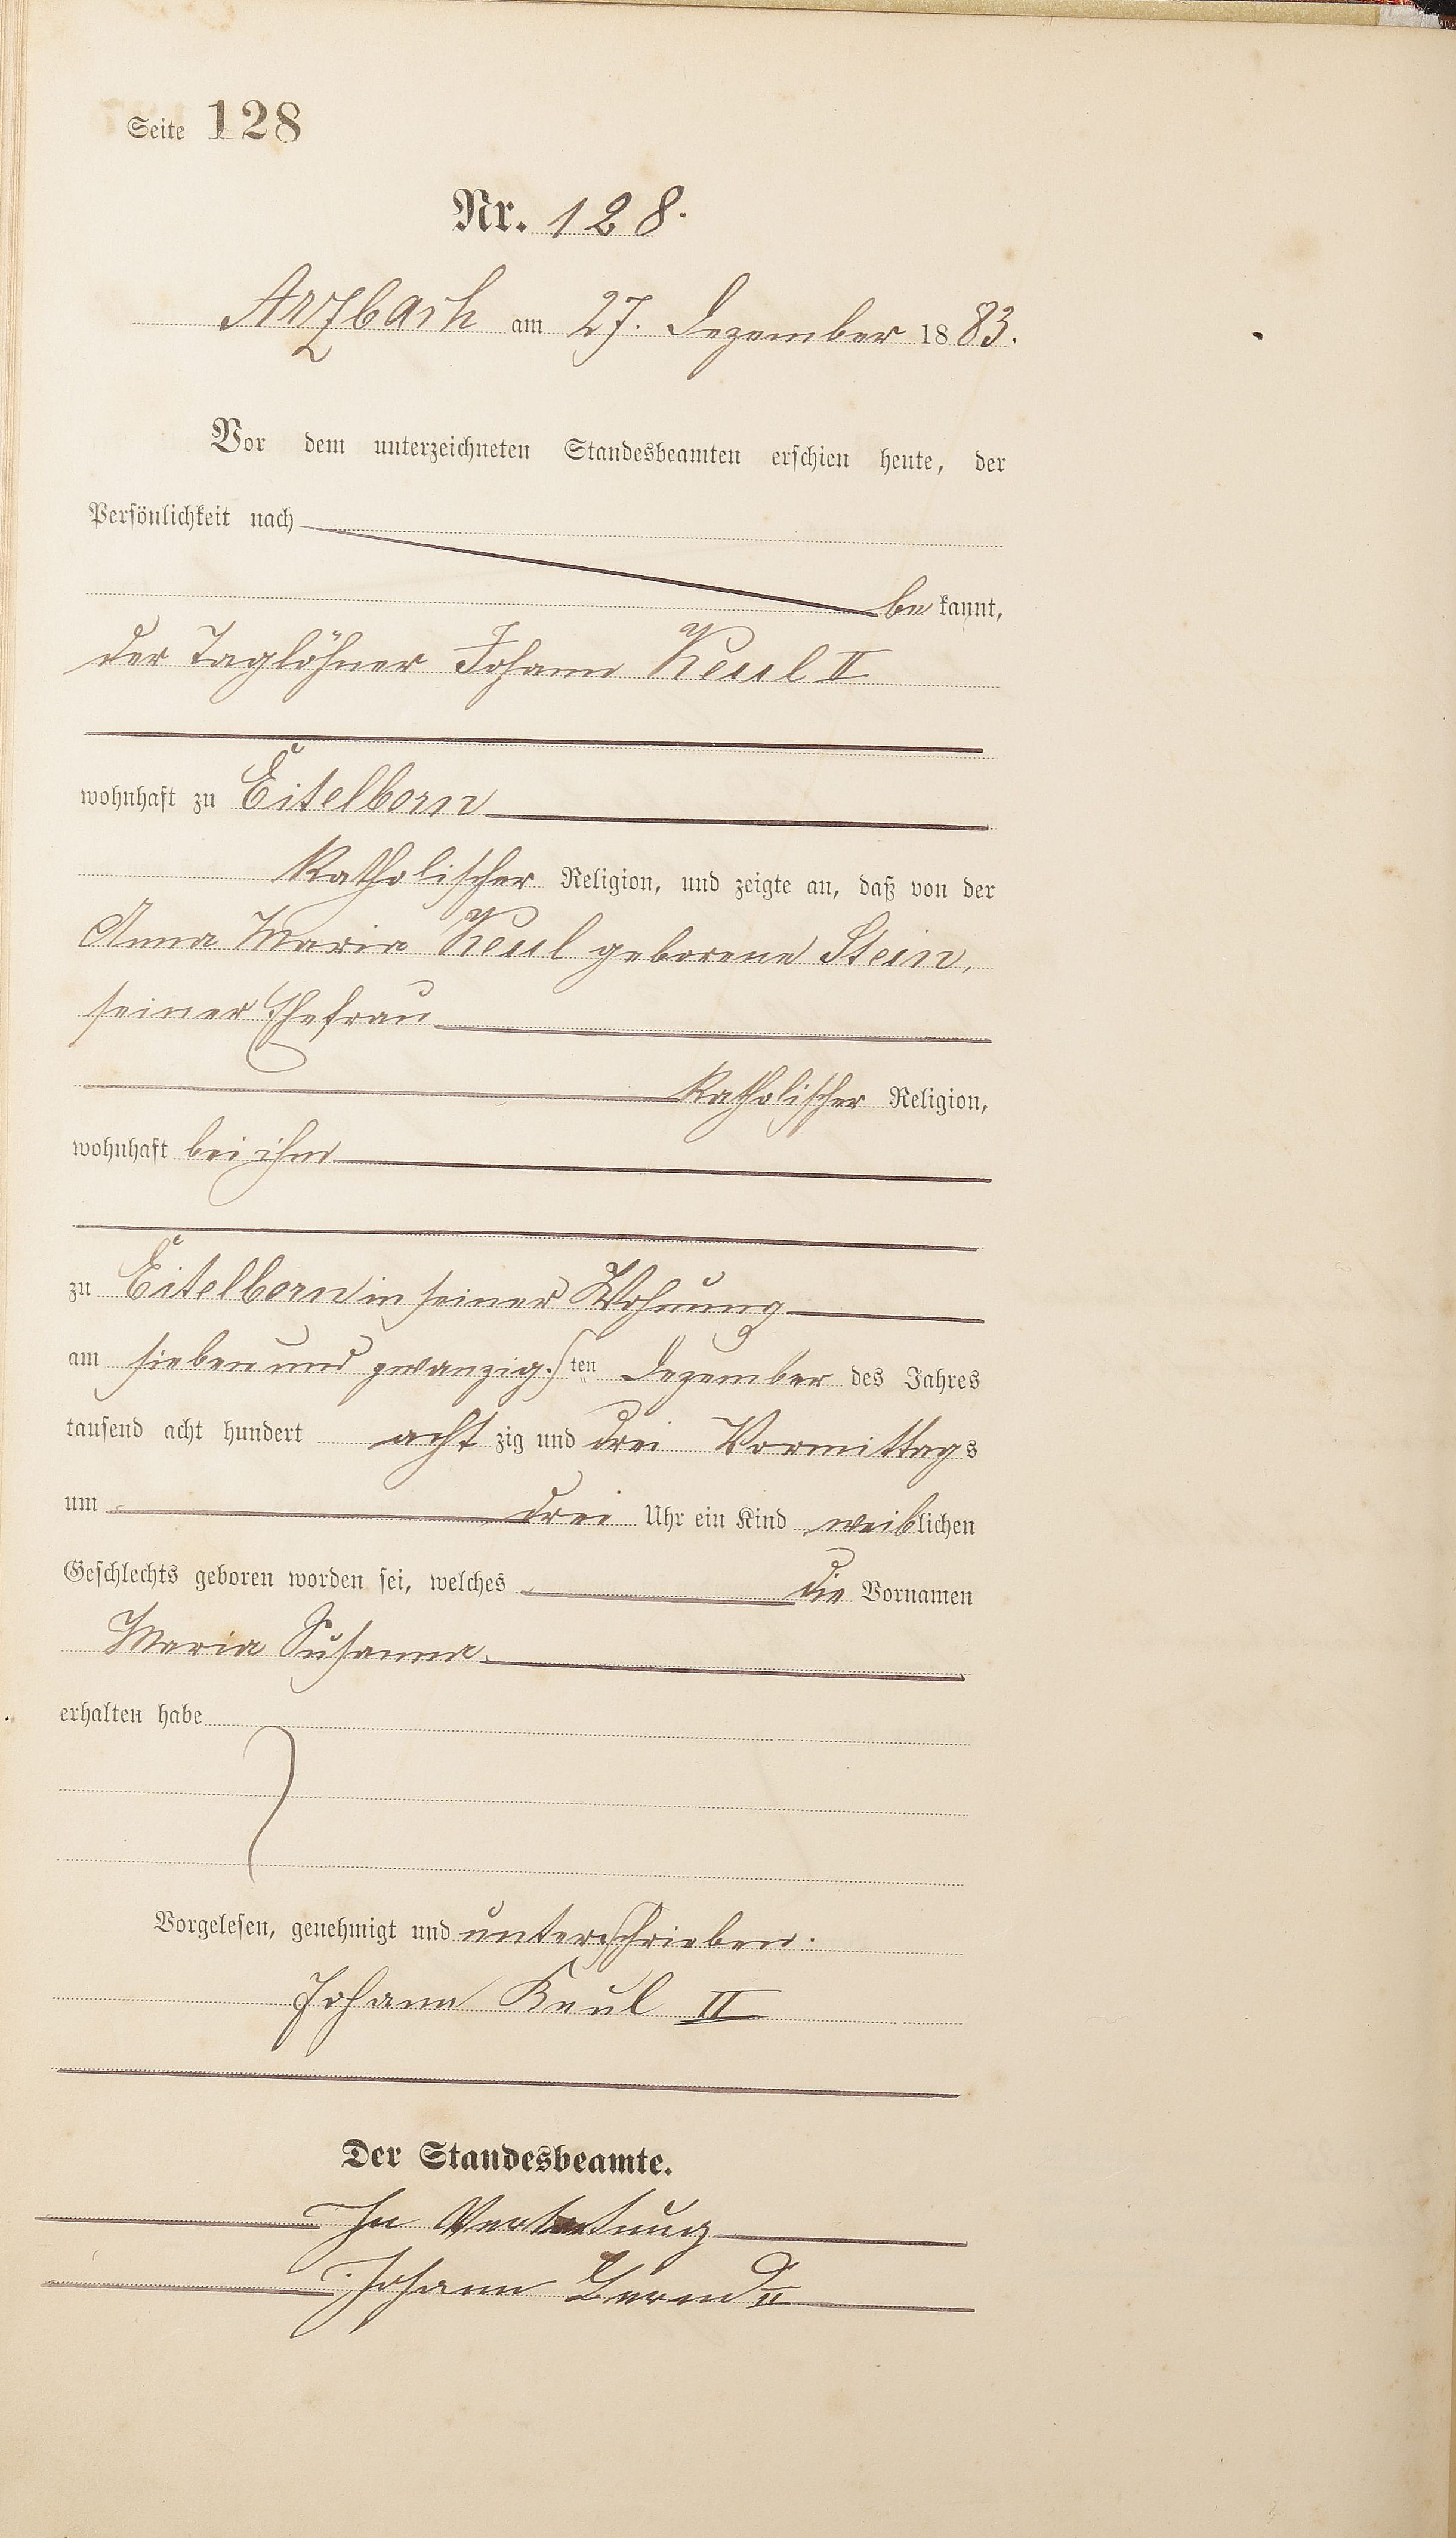 Seite 128
Nr. 128.
Arzbach am 27. Dezember 1883.
Vor dem unterzeichneten Standesbeamten erschien heute, der
Persönlichkeit nach
bekannt,
der Taglöhner Johann Keul II
wohnhaft zu Eitelborn
katholischer Religion, und zeigte an, daß von der
Anna Maria Keul geborene Stein,
seiner Ehefrau
katholischer Religion,
wohnhaft bei ihm
zu Eitelborn in seiner Wohnung
am sieben und zwanzigsten Dezember des Jahres
tausend acht hundert achtzig und drei Vormittags
um drei Uhr ein Kind weiblichen
Geschlechts geboren worden sei, welches die Vornamen
Maria Susanna
erhalten habe
Vorgelesen, genehmigt und unterschrieben.
Johann Keul II
Der Standesbeamte.
In Vertretung
Johann II